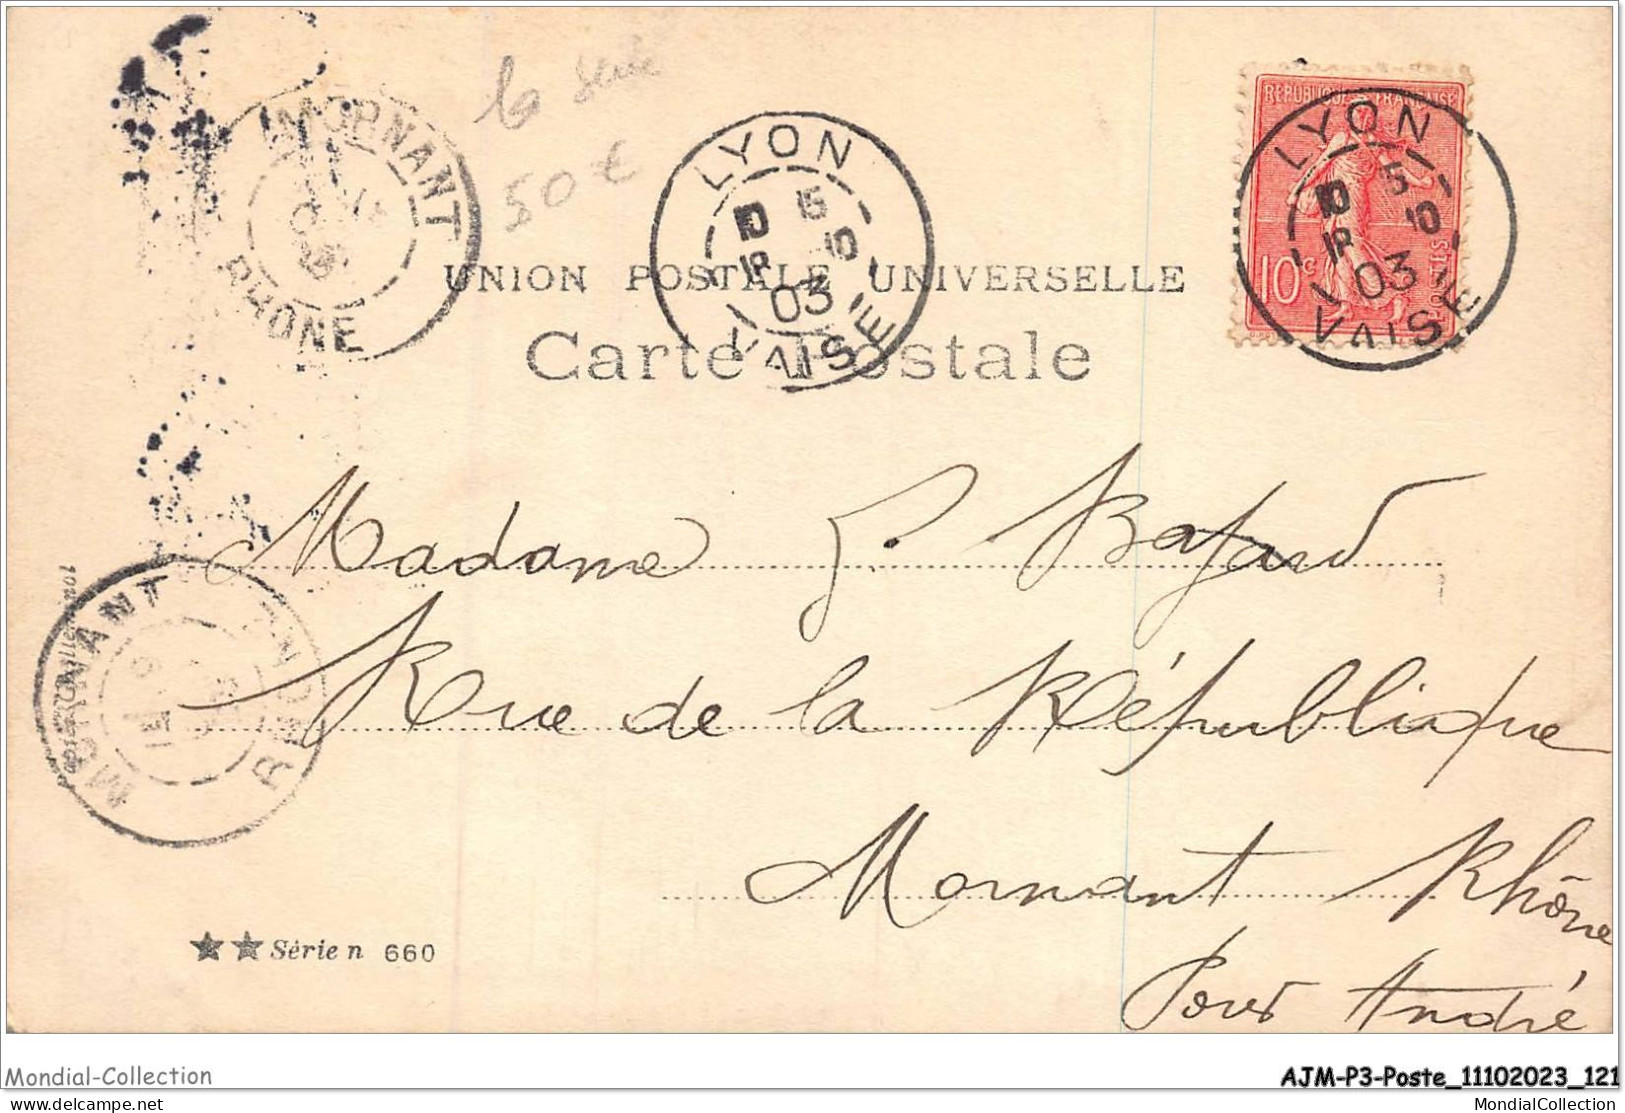 la série
50 €
MORNANT
RHONE
LYON
10 5
18 10
03
VAISE
REPUBLIQUE FRANÇAISE
10c
POSTES
LYON
10 5
18 10
03
VAISE
UNION POSTALE UNIVERSELLE
Carte Postale
Madame G. Bajard
Rue de la République
Mornant Rhône
Pour André
MORNANT
RHONE
★★ Série n 660
Mondial-Collection
AJM-P3-Poste_11102023_121
delcampe.net
MondialCollection